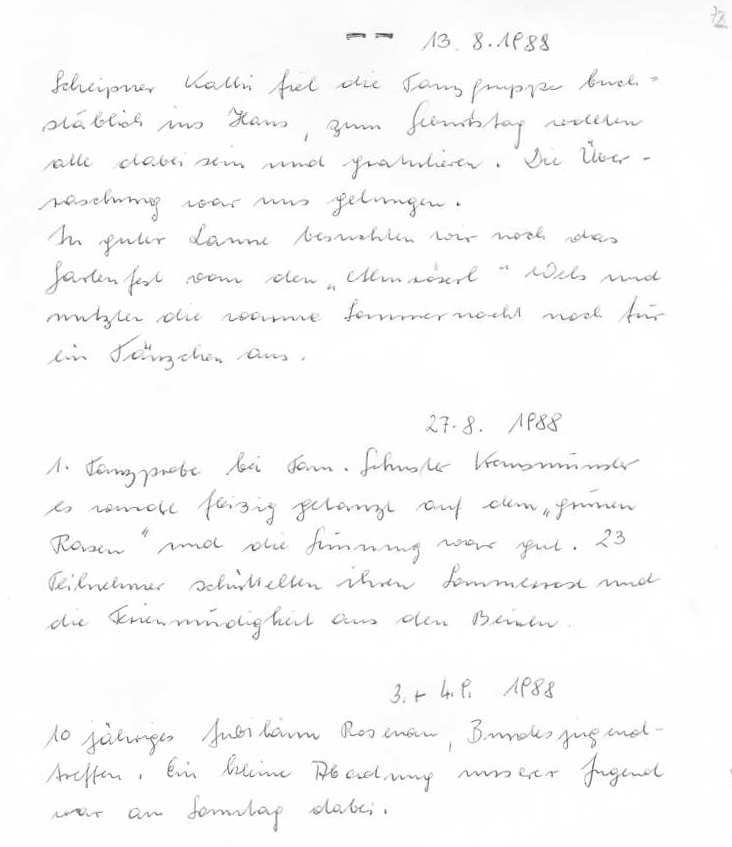 13. 8. 1988
Scheipner Kathi fiel die Tanzgruppe buch-
stäblich ins Haus, zum Geburtstag wollten
alle dabei sein und gratulieren. Die Über-
raschung war uns gelungen.
In guter Laune besuchten wir noch das
Gartenfest von den „Almröserl" Wels und
nutzten die warme Sommernacht noch für
ein Tänzchen aus.
27. 8. 1988
1. Tanzprobe bei Fam. Schuster Kremsmünster
es wurde fleizig getanzt auf dem „grünen
Rasen" und die Stimmung war gut. 23
Teilnehmer schüttelten ihren Sommerrost und
die Ferienmüdigkeit aus den Beinen.
3. + 4. 9. 1988
10 jähriges Jubiläum Rosenau, Bundesjugend-
treffen. Ein kleine Abordnung unserer Jugend
war am Samstag dabei.